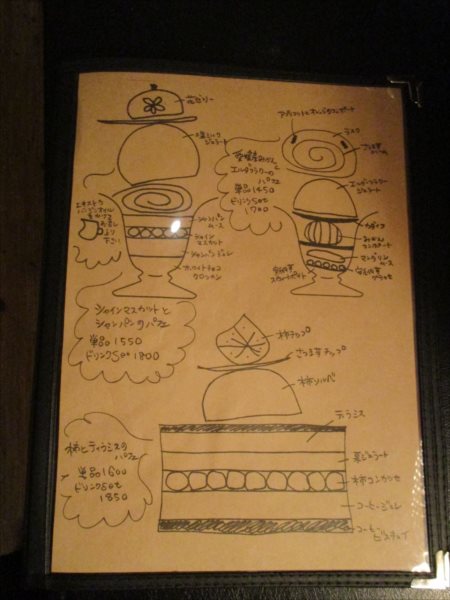 花ゼリー
塩ミルク
ジェラート
エキストラ
バージンオイル
お好みで
下さい
シャンパン
ムース
シャイン
マスカット
シャンパンジュレ
ホワイトチョコ
クロッカン
シャインマスカットと
シャンパンのパフェ
単品1550
ドリンクset 1800
愛媛産みかんと
エルダーフラワーの
パフェ
単品1450
ドリンクset
1700
ラスク
エルダーフラワー
ジェラート
みかん
コンポート
マンダリン
ムース
安納芋
スウィートポテト
柿チップ
さつま芋チップ
柿ソルベ
ティラミス
柿コンカッセ
コーヒージュレ
コーヒービスキュイ
柿とティラミスの
パフェ
単品1600
ドリンクset
1850